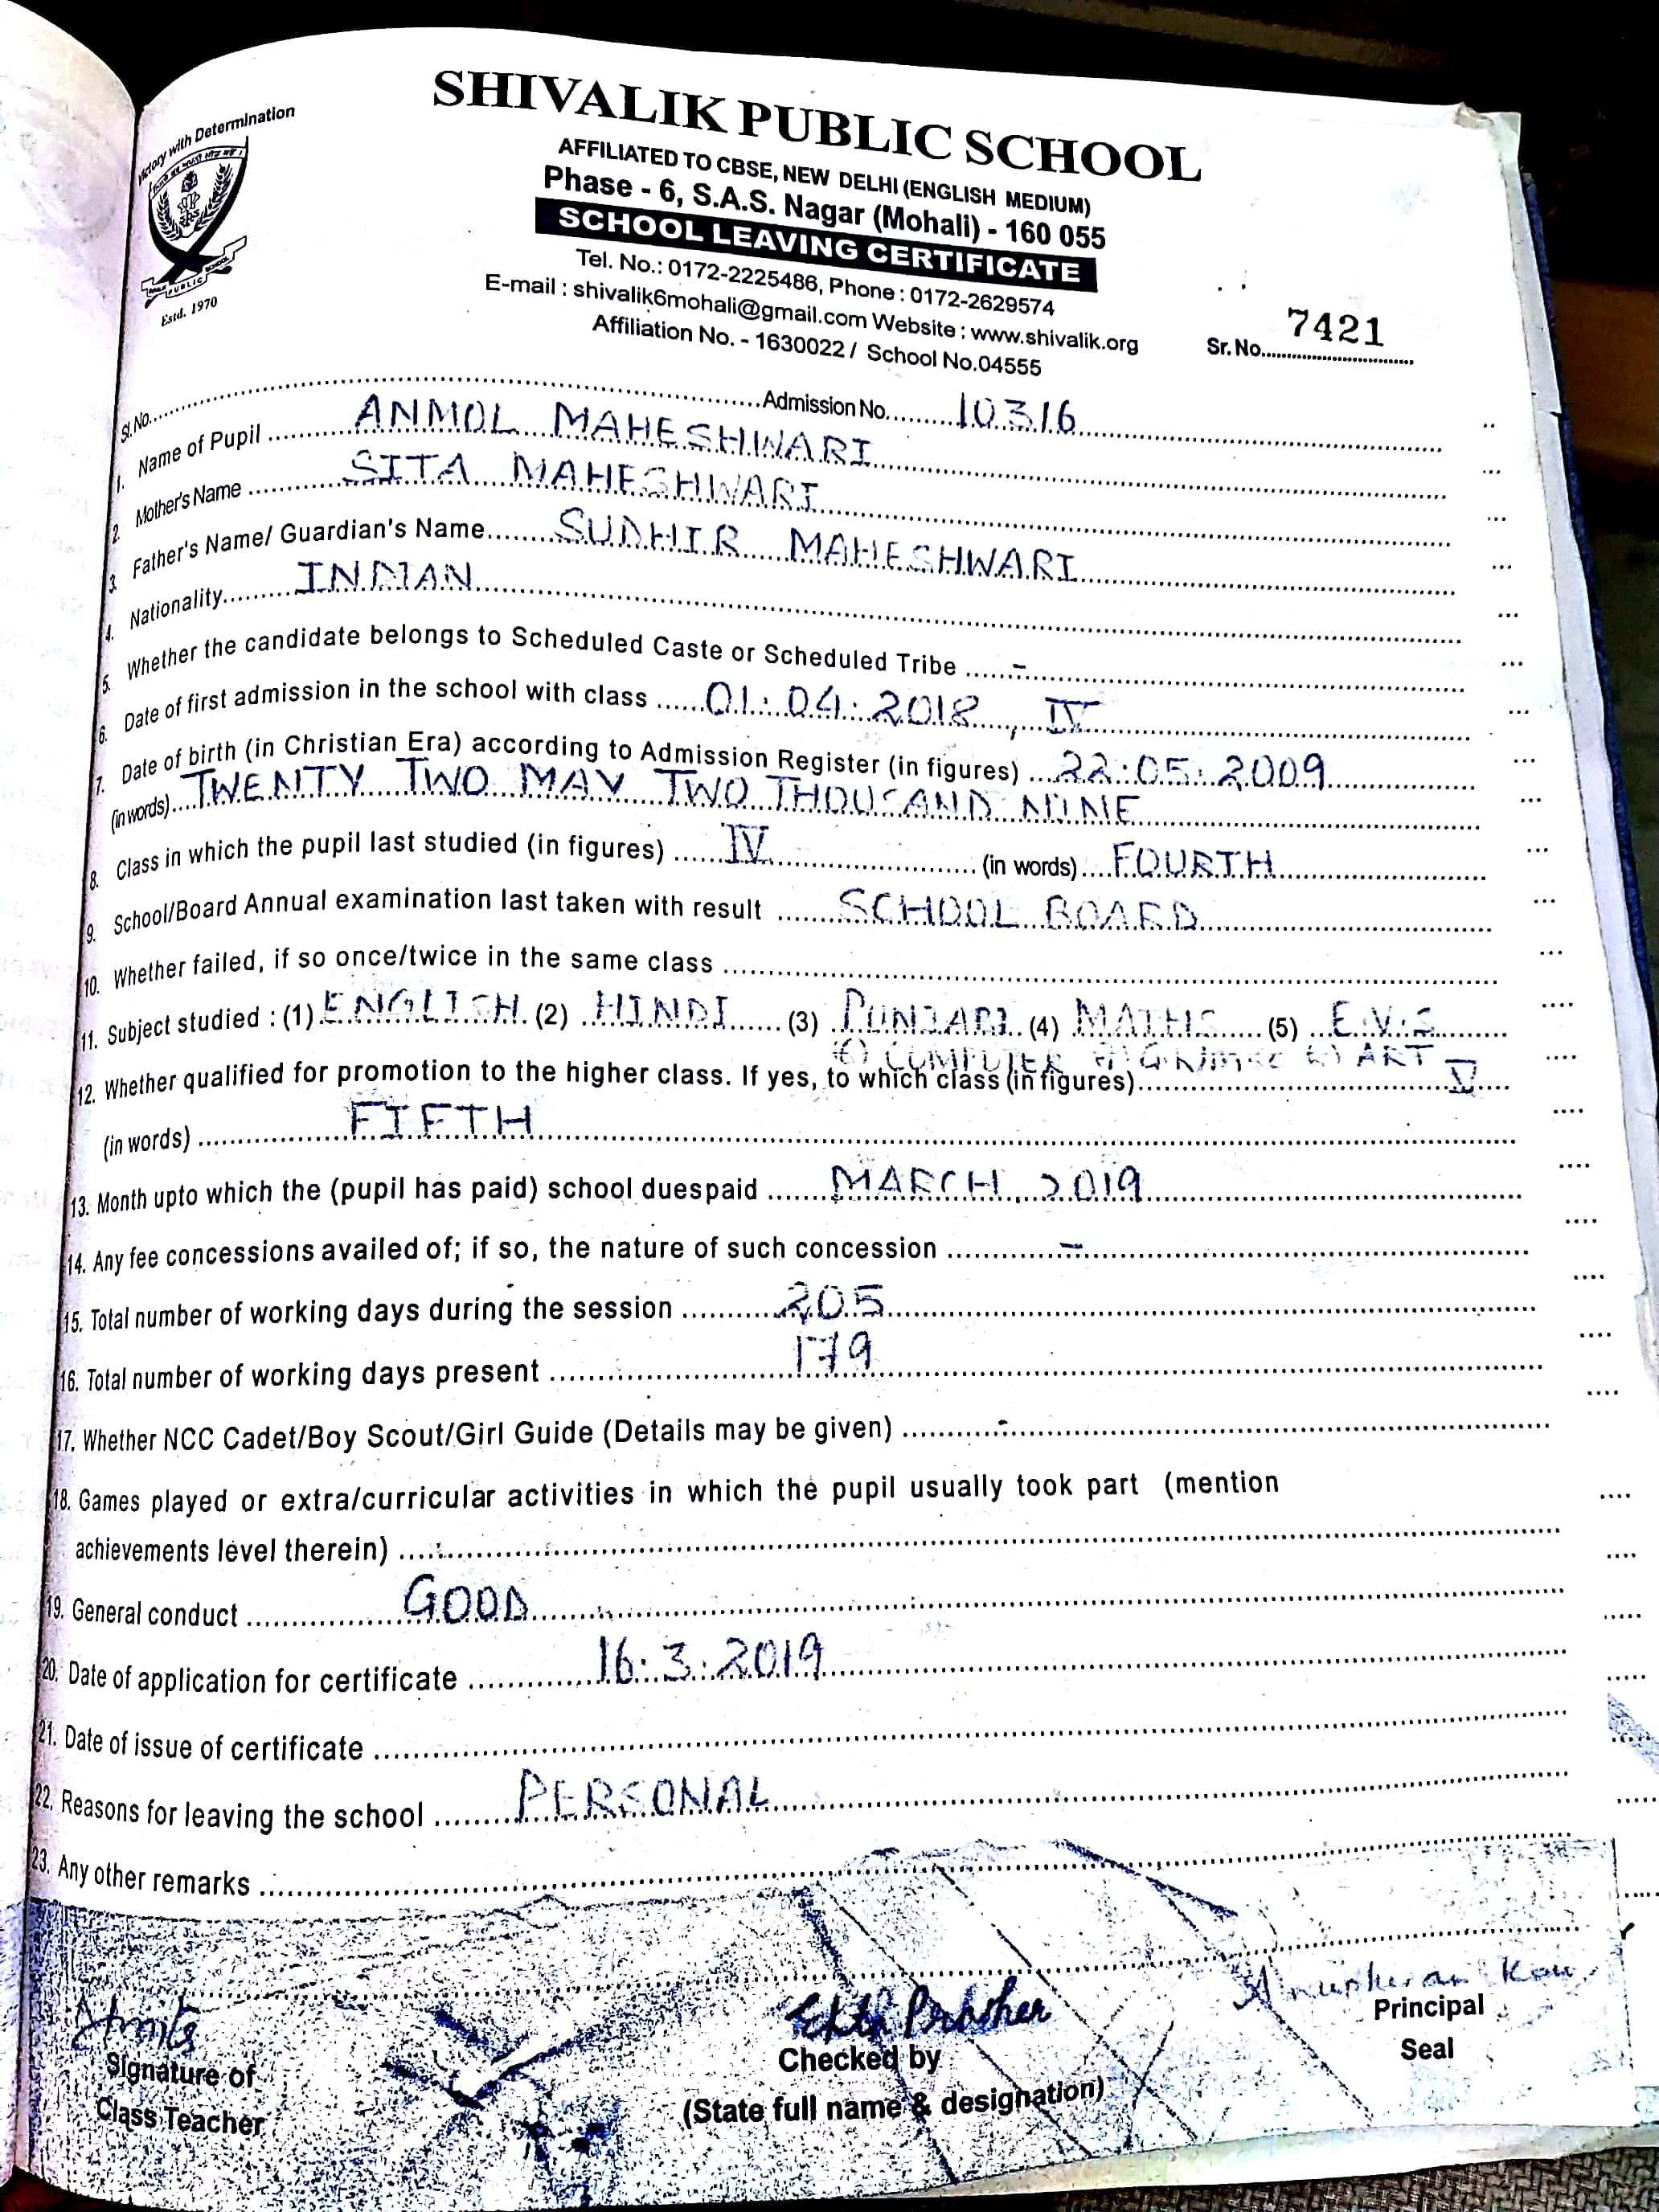 Victory with Determination
SHIVALIK PUBLIC SCHOOL
AFFILIATED TO CBSE, NEW DELHI (ENGLISH MEDIUM)
Phase - 6, S.A.S. Nagar (Mohali) - 160 055
SCHOOL LEAVING CERTIFICATE
Tel. No.: 0172-2225486, Phone : 0172-2629574
E-mail : shivalik6mohali@gmail.com Website : www.shivalik.org
Affiliation No. - 1630022 / School No.04555
Estd. 1970
Sr. No. 7421
Sl. No. Admission No. 10316
1. Name of Pupil ANMOL MAHESHWARI
2. Mother's Name SITA MAHESHWARI
3. Father's Name/ Guardian's Name SUDHIR MAHESHWARI
4. Nationality INDIAN
5. Whether the candidate belongs to Scheduled Caste or Scheduled Tribe -
6. Date of first admission in the school with class 01.04.2018, IV
7. Date of birth (in Christian Era) according to Admission Register (in figures) 22.05.2009
(in words) TWENTY TWO MAY TWO THOUSAND NINE
8. Class in which the pupil last studied (in figures) IV (in words) FOURTH
9. School/Board Annual examination last taken with result SCHOOL BOARD
10. Whether failed, if so once/twice in the same class
11. Subject studied : (1) ENGLISH (2) HINDI (3) PUNJABI (4) MATHS (5) E.V.S
6) COMPUTER ART
12. Whether qualified for promotion to the higher class. If yes, to which class (in figures) V
(in words) FIFTH
13. Month upto which the (pupil has paid) school duespaid MARCH, 2019
14. Any fee concessions availed of; if so, the nature of such concession -
15. Total number of working days during the session 205
16. Total number of working days present 179
17. Whether NCC Cadet/Boy Scout/Girl Guide (Details may be given) -
18. Games played or extra/curricular activities in which the pupil usually took part (mention
achievements level therein)
19. General conduct GOOD
20. Date of application for certificate 16.3.2019
21. Date of issue of certificate
22. Reasons for leaving the school PERSONAL
23. Any other remarks
Signature of
Class Teacher
Checked by
(State full name & designation)
Principal
Seal